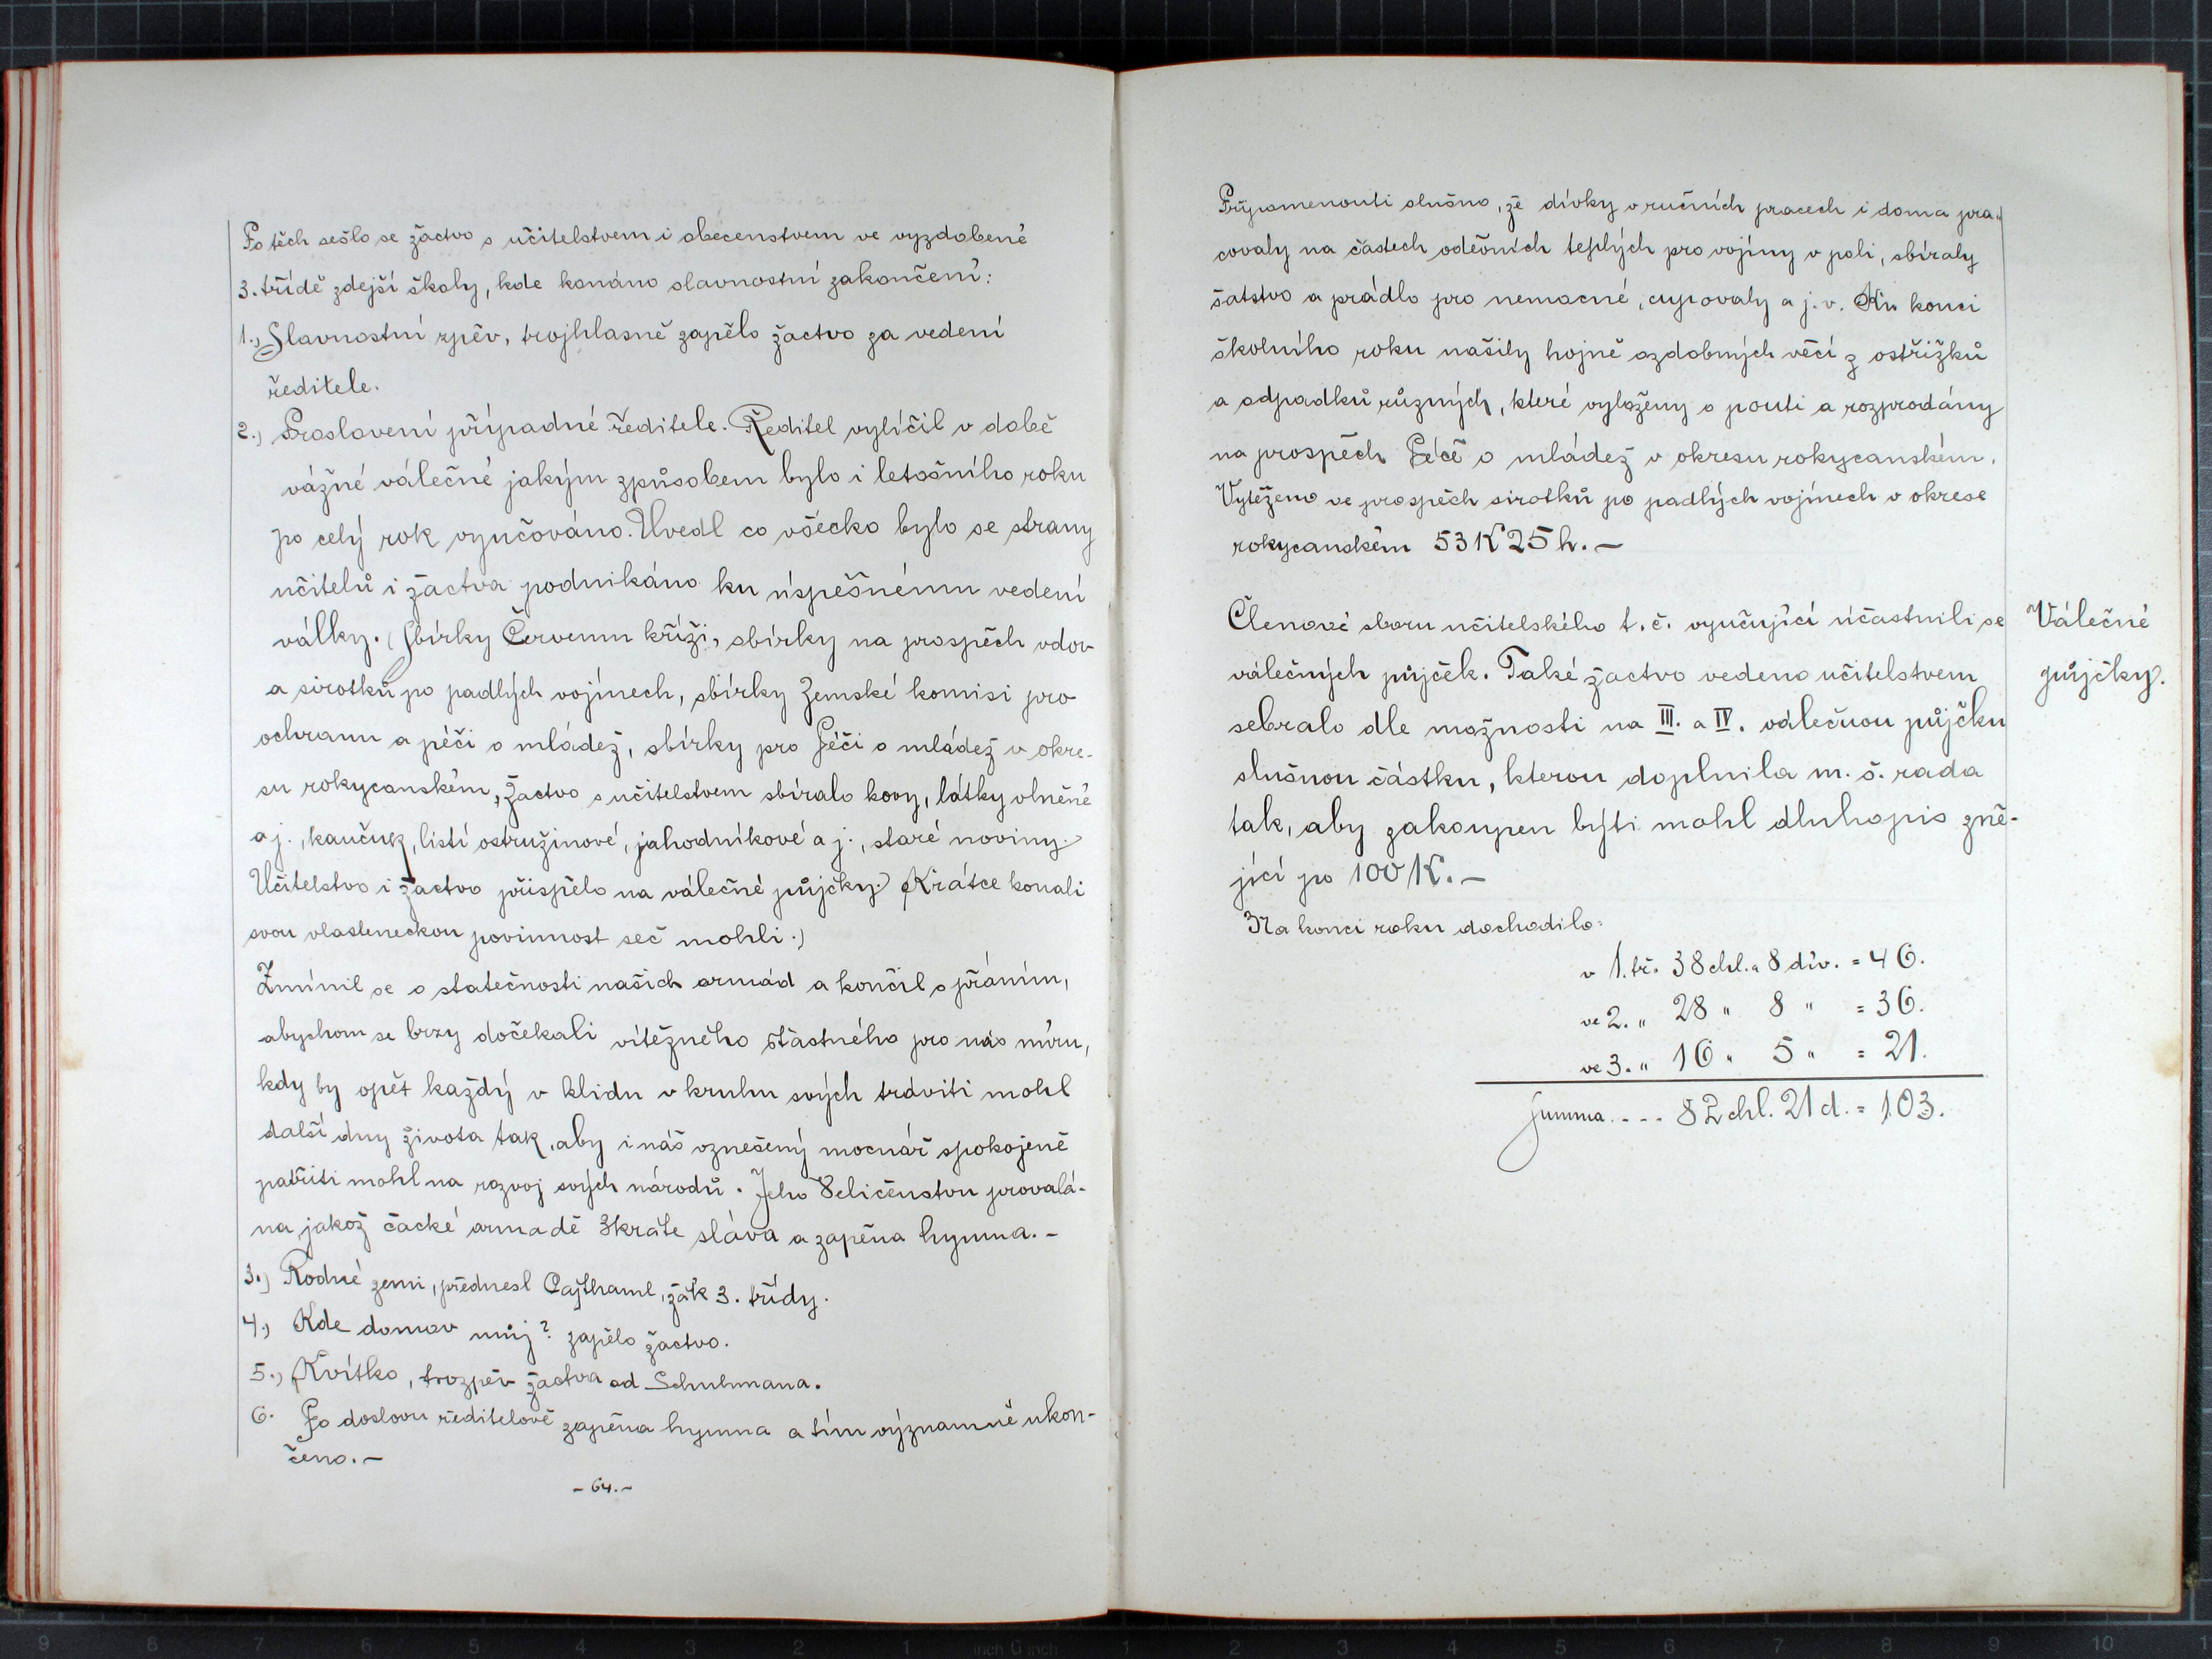 Po těch sešlo se žactvo s učitelstvem i obecenstvem ve vyzdobené
3. třídě zdejší školy, kde konáno slavnostní zakončení:
1.) Slavnostní zpěv, trojhlasně zapělo žactvo za vedení
ředitele.
2.) Proslovení případné ředitele. Ředitel vylíčil v době
vážné válečné jakým způsobem bylo i letošního roku
po celý rok vyučováno. Uvedl co všecko bylo se strany
učitelů i žactva podnikáno ku úspěšnému vedení
války. (Sbírky Červenu kříži, sbírky na prospěch vdov
a sirotků po padlých vojínech, sbírky Zemské komisi pro
ochranu a péči o mládež, sbírky pro Péči o mládež v okre-
su rokycanském, žactvo s učitelstvem sbíralo kovy, látky vlněné
a j., kaučuk, listí ostružinové, jahodníkové a j., staré noviny.
Učitelstvo i žactvo přispělo na válečné půjčky.) (Krátce konali
svou vlasteneckou povinnost seč mohli.)
Zmínil se o statečnosti našich armád a končil s přáním,
abychom se brzy dočekali vítězného šťastného pro nás míru,
kdy by opět každý v klidu v kruhu svých tráviti mohl
další dny života tak, aby i náš vznešený mocnář spokojeně
patřiti mohl na rozvoj svých národů. Jeho Veličenstvu provolá-
na jakož čacké armadě 3kráte sláva a zapěna hymna. -
3.) Rodné zemi, přednesl Cajthaml, žák 3. třídy.
4.) Kde domov můj? zapělo žactvo.
5.) Kvítko, trozpěv žactva od Schuhmana.
6. Po doslovu ředitelově zapěna hymna a tím významně ukon-
čeno. -
- 64. -
Připomenouti slušno, že dívky v ručních pracech i doma pra-
covaly na částech oděvních teplých pro vojíny v poli, sbíraly
šatstvo a prádlo pro nemocné, cupovaly a j. v. Ku konci
školního roku našily hojně ozdobných věcí z ostřižků
a odpadků různých, které vyloženy o pouti a rozprodány
na prospěch Péče o mládež v okresu rokycanském.
Vytěženo ve prospěch sirotků po padlých vojínech v okrese
rokycanském 53 K 25 h. -
Členové sboru učitelského t. č. vyučující účastnili se
válečných půjček. Také žactvo vedeno učitelstvem
sebralo dle možnosti na III. a IV. válečnou půjčku
slušnou částku, kterou doplnila m. š. rada
tak, aby zakoupen býti mohl dluhopis zně-
jící po 100 K. -
Válečné
půjčky.
Na konci roku dochodilo:
v 1. tř. 38 chl. a 8 dív. = 46.
ve 2. " 28 " 8 " = 36.
ve 3. " 16 " 5 " = 21.
Summa.... 82 chl. 21 d. = 103.